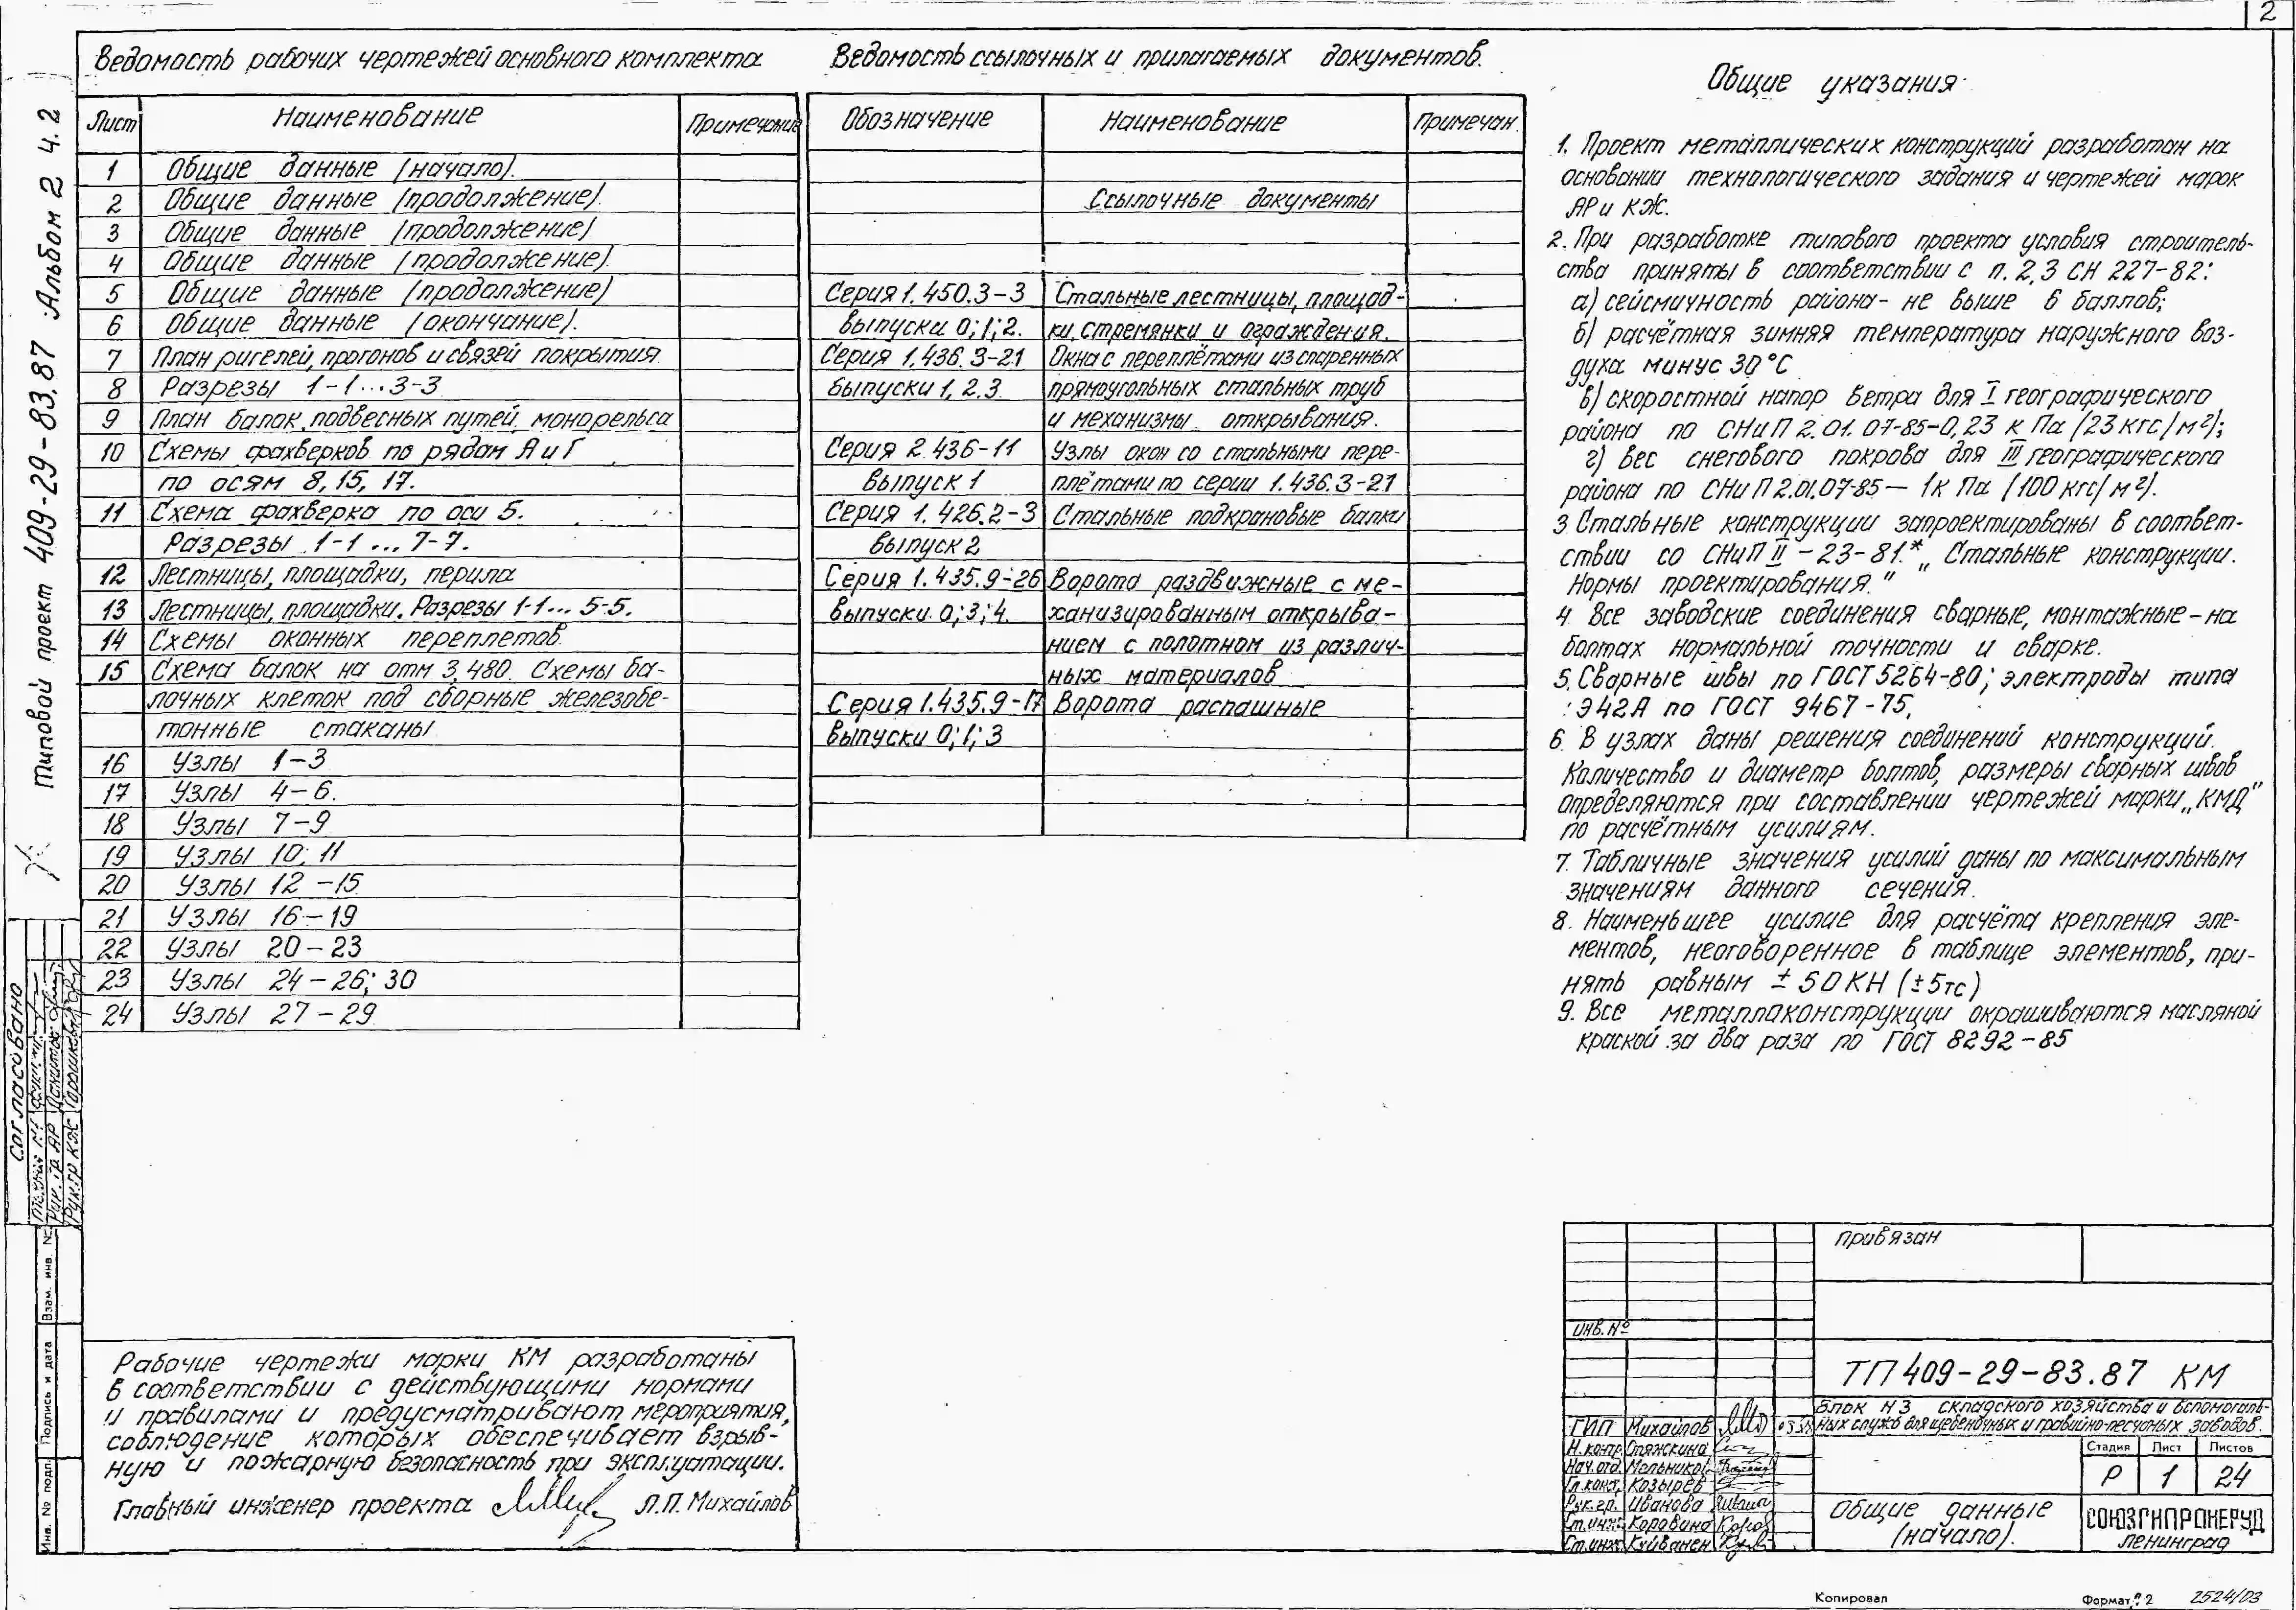 2
Ведомость рабочих чертежей основного комплекта
Лист Наименование Примечание
1 Общие данные (начало).
2 Общие данные (продолжение).
3 Общие данные (продолжение)
4 Общие данные (продолжение).
5 Общие данные (продолжение)
6 Общие данные (окончание).
7 План ригелей, прогонов и связей покрытия.
8 Разрезы 1-1...3-3
9 План балок, подвесных путей, монорельса
10 Схемы фахверков по рядам А и Г
по осям 8, 15, 17.
11 Схема фахверка по оси 5.
Разрезы 1-1 ... 7-7.
12 Лестницы, площадки, перила
13 Лестницы, площадки. Разрезы 1-1... 5-5.
14 Схемы оконных переплетов.
15 Схема балок на отм 3,480. Схемы ба-
лочных клеток под сборные железобе-
тонные стаканы
16 Узлы 1-3
17 Узлы 4-6.
18 Узлы 7-9
19 Узлы 10; 11
20 Узлы 12-15
21 Узлы 16-19
22 Узлы 20-23
23 Узлы 24-26; 30
24 Узлы 27-29
Ведомость ссылочных и прилагаемых документов.
Обозначение Наименование Примечан.
Ссылочные документы
Серия 1.450.3-3 Стальные лестницы, площад-
выпуски 0; 1; 2. ки, стремянки и ограждения.
Серия 1.436.3-21 Окна с переплётами из спаренных
выпуски 1, 2.3. прямоугольных стальных труб
и механизмы открывания.
Серия 2.436-11 Узлы окон со стальными пере-
выпуск 1 плётами по серии 1.436.3-21
Серия 1.426.2-3 Стальные подкрановые балки
выпуск 2
Серия 1.435.9-26 Ворота раздвижные с ме-
выпуски 0; 3; 4. ханизированным открыва-
нием с полотном из различ-
ных материалов
Серия 1.435.9-17 Ворота распашные
выпуски 0; 1; 3
Общие указания
1. Проект металлических конструкций разработан на
основании технологического задания и чертежей марок
АР и КЖ.
2. При разработке типового проекта условия строитель-
ства приняты в соответствии с п. 2,3 СН 227-82:
а) сейсмичность района - не выше 6 баллов;
б) расчётная зимняя температура наружного воз-
духа минус 30°С
в) скоростной напор ветра для I географического
района по СНиП 2.01.07-85-0,23 кПа (23 кгс/м²);
г) вес снегового покрова для III географического
района по СНиП 2.01.07-85 — 1кПа (100 кгс/м²).
3 Стальные конструкции запроектированы в соответ-
ствии со СНиП II-23-81.* „Стальные конструкции.
Нормы проектирования."
4. Все заводские соединения сварные, монтажные - на
болтах нормальной точности и сварке.
5. Сварные швы по ГОСТ 5264-80; электроды типа
Э42А по ГОСТ 9467-75.
6. В узлах даны решения соединений конструкций.
Количество и диаметр болтов, размеры сварных швов
определяются при составлении чертежей марки „КМД"
по расчётным усилиям.
7. Табличные значения усилий даны по максимальным
значениям данного сечения.
8. Наименьшее усилие для расчёта крепления эле-
ментов, неоговоренное в таблице элементов, при-
нять равным ± 50 КН (±5тс)
9. Все металлоконструкции окрашиваются масляной
краской за два раза по ГОСТ 8292-85
Типовой проект 409-29-83.87 Альбом 2 ч. 2
Согласовано
Рук. гр АР
Рук.гр КЖ
Взам. инв. №
Подпись и дата
Инв. № подл.
Рабочие чертежи марки КМ разработаны
в соответствии с действующими нормами
и правилами и предусматривают мероприятия,
соблюдение которых обеспечивает взрыв-
ную и пожарную безопасность при эксплуатации.
Главный инженер проекта Л.П. Михайлов
привязан
инв. №
ТП 409-29-83.87 КМ
Блок №3 складского хозяйства и вспомогатель-
ных служб для щебеночных и гравийно-песчаных заводов.
ГИП Михайлов
Н.контр. Спяжкина
Нач.отд. Мельников
Гл.конст. Козырев
Рук.гр. Иванова
Ст.инж. Коровина
Ст.инж. Куйванен
Стадия Лист Листов
Р 1 24
Общие данные
(начало).
СОЮЗГИПРОНЕРУД
Ленинград
Копировал
Формат 2
2524/03